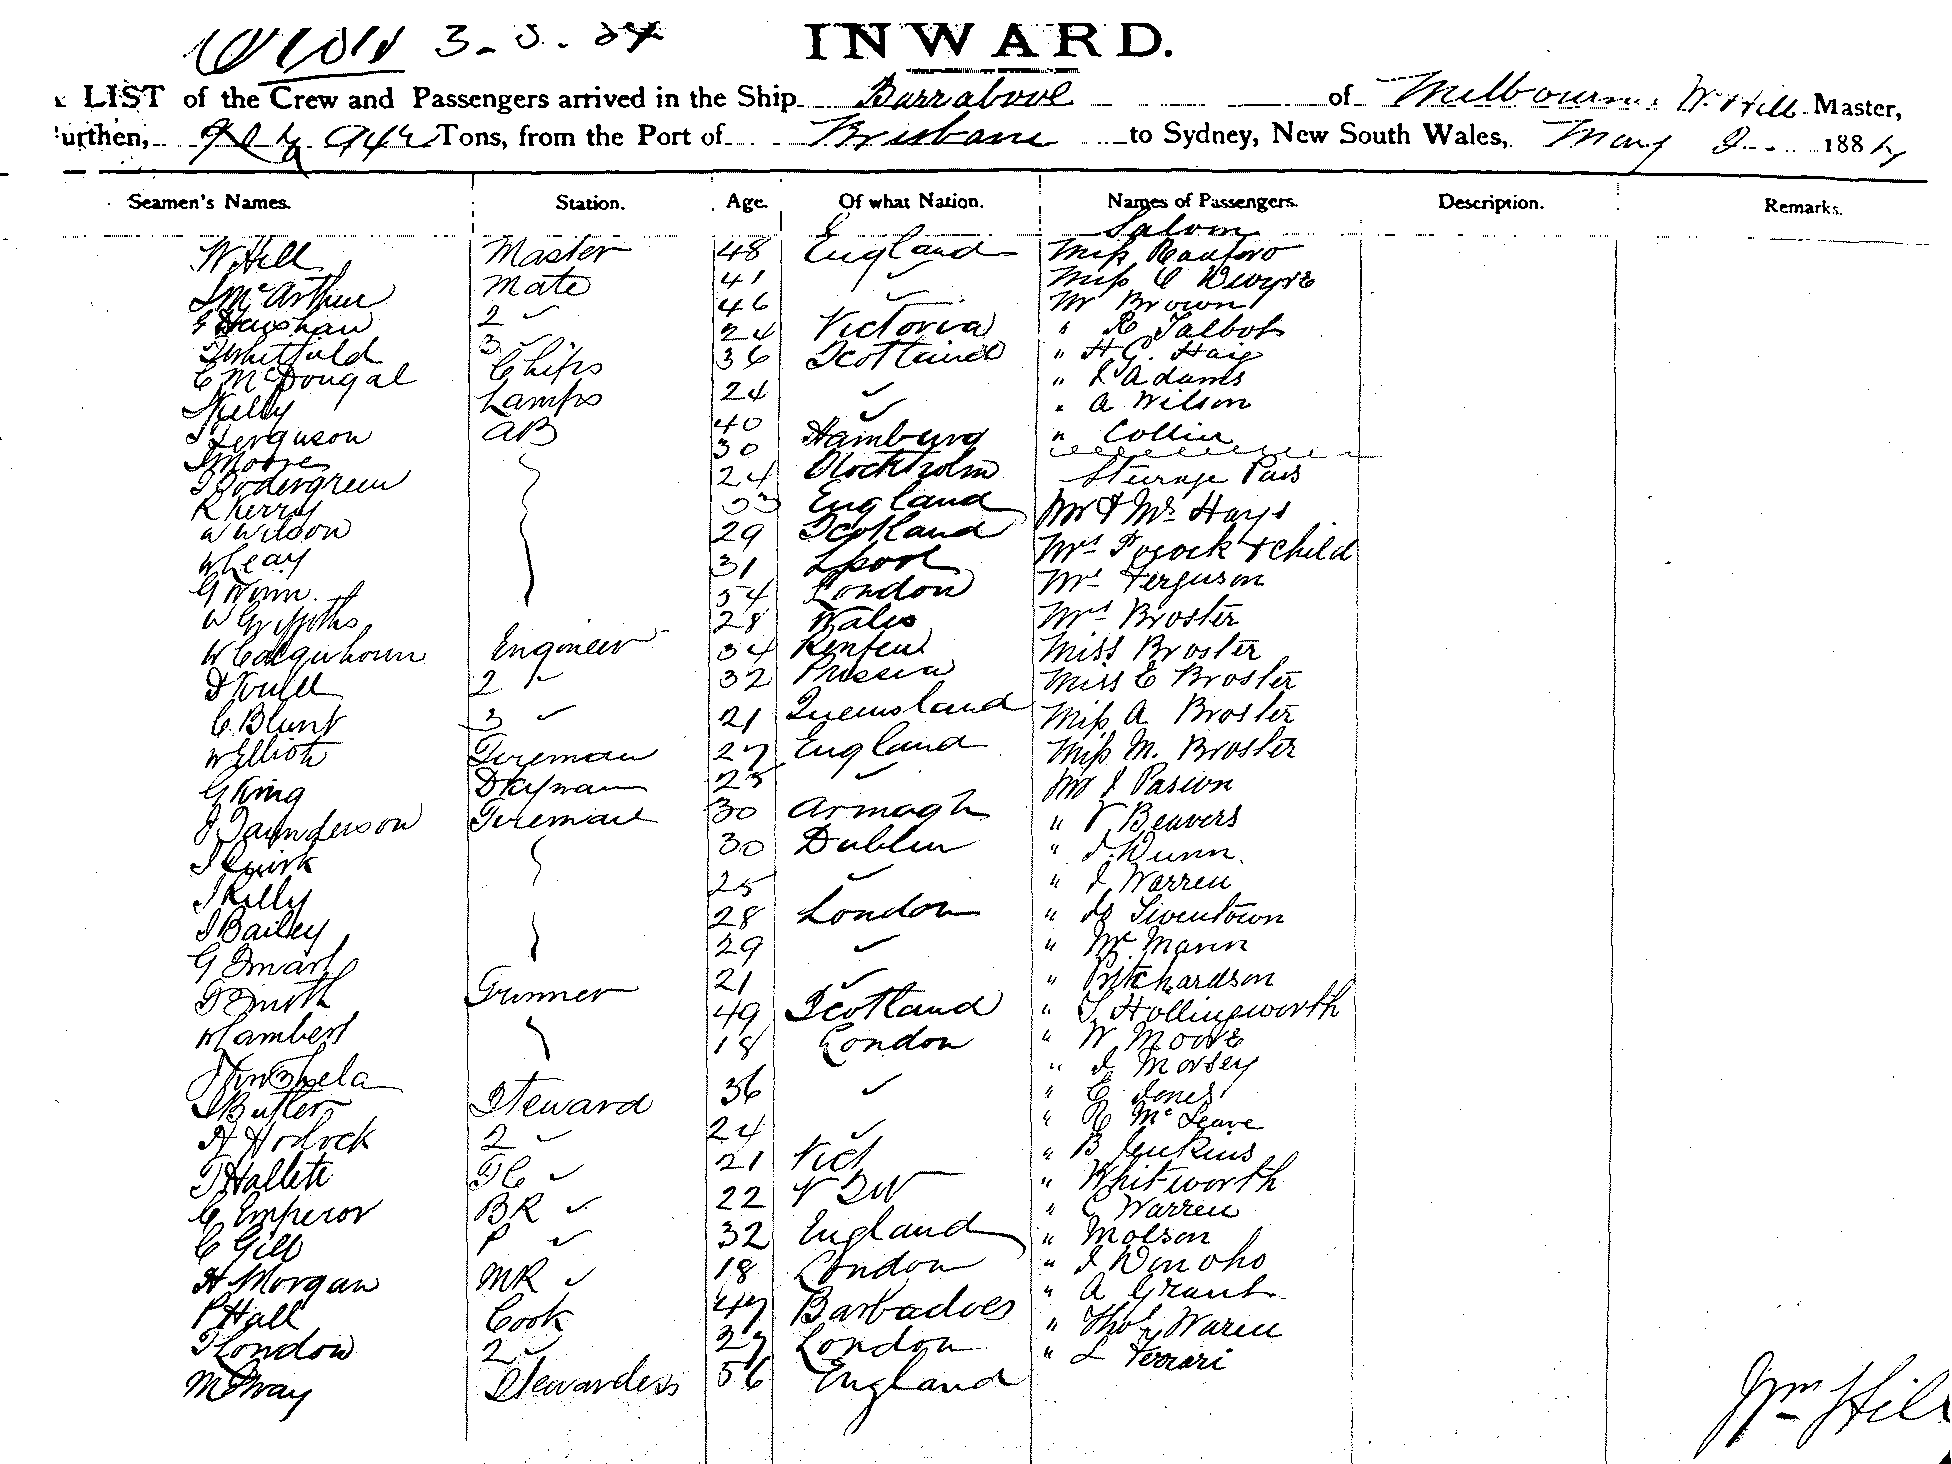 3-5.84 INWARD.
LIST of the Crew and Passengers arrived in the Ship Barrabool of Melbourne W. Hill Master,
urthen, 942 Tons, from the Port of Brisbane to Sydney, New South Wales, May 2 1884
Seamen's Names. Station. Age. Of what Nation. Names of Passengers. Description. Remarks.
Saloon
W Hill Master 48 England Miss
McArthur Mate 41 ✓ Miss C
2 ✓ 46 ✓ Mr Brown
Whitfield 3 ✓ 24 Victoria " R Talbot
C McDougal Chips 36 Scotland " H G. Haig
Kelly Lamps 24 ✓ " J Adams
J Ferguson AB 40 ✓ " A Wilson
J Moore 30 Hamburg " Collin
Sodergreen 24 Stockholm Steerage Pass
R Kerry 33 England Mr & Mrs Hays
W Wilson 29 Scotland Mrs Pocock & child
W Leay 31 Lpool Mrs Ferguson
G Wynn 54 London Mrs Broster
W Griffiths 28 Wales Miss Broster
W Colquhoun Engineer 34 Renfrew Miss E Broster
2 ✓ 32 Prussia Miss A Broster
C. Blunt 3 ✓ 21 Queensland Miss M. Broster
W Elliott Fireman 27 England Mr J
G King Dkyman 25 ✓ " V Beavers
J Saunderson Fireman 30 Armagh " J. Dunn
J Quirk 30 Dublin " J Warren
J Kelly 25 ✓ "
J Bailey 28 London " Mc Mann
G Smart 29 ✓ " Pritchardson
Smith Trimmer 21 ✓ " T Hollingworth
W Lambert 49 Scotland " W Moore
18 London " J Morsey
J Butler Steward 36 ✓ " E Jones
A Horlock 2 ✓ 24 ✓ " R McLeave
T Hallett FC ✓ 21 Vict " B Jenkins
C Emperor BR ✓ 22 N S W " Whitworth
C Gill P ✓ 32 England " C Warren
H Morgan MR ✓ 18 London " Molson
P Hall Cook 47 Barbadoes " J Donoho
J London 2 ✓ 27 London " A Grant
M Stewardess 56 England " Thos Waren
" L Ferrari
Wm Hil